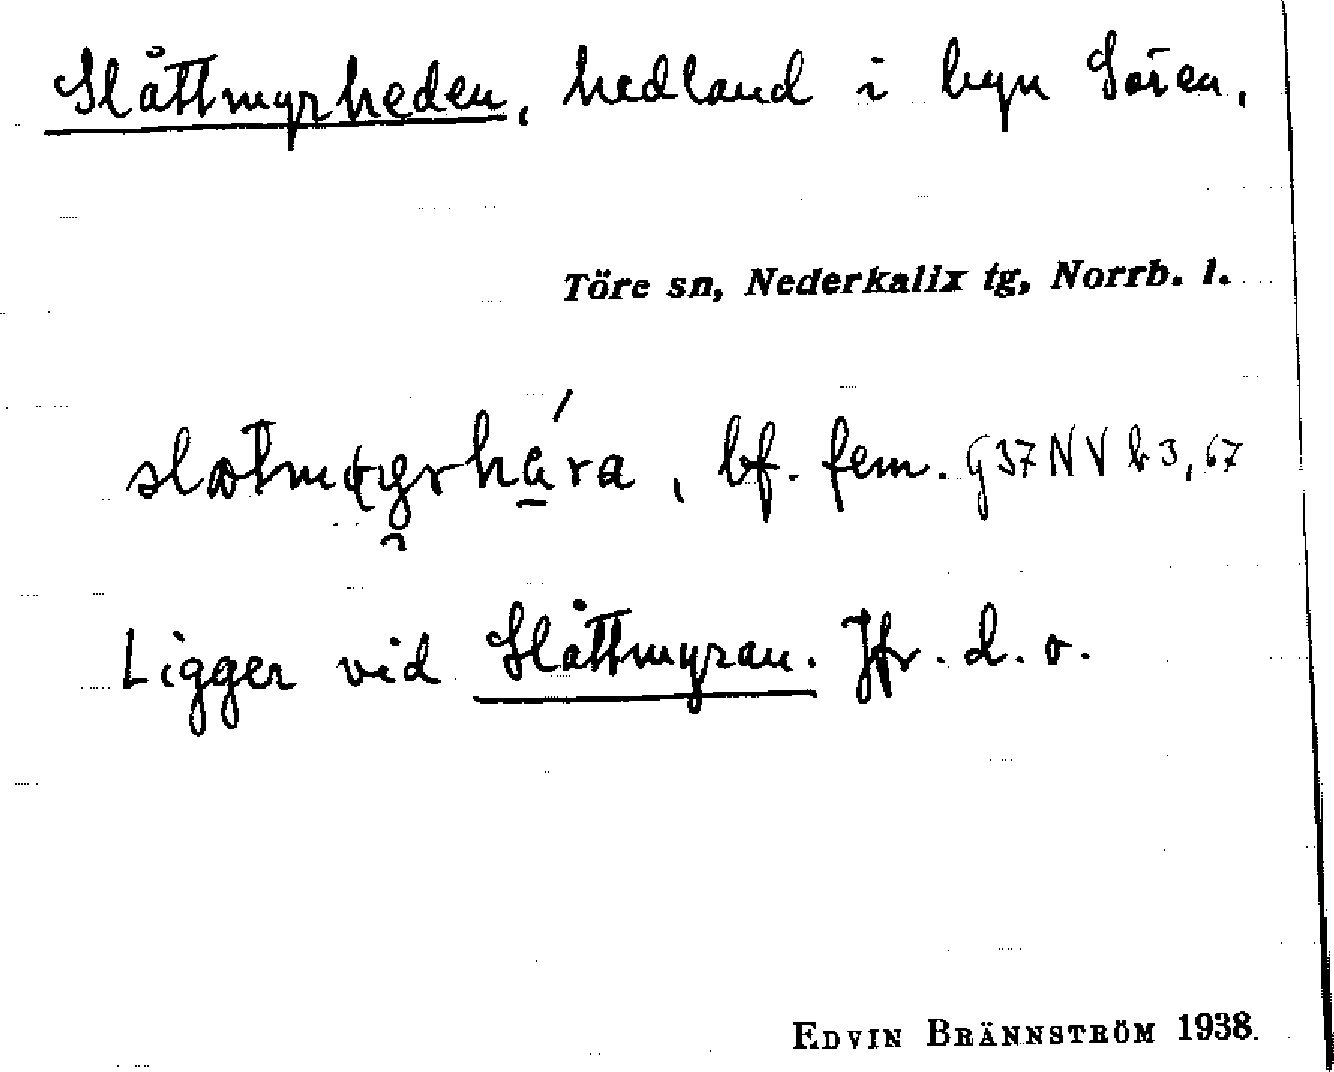 Slåttmyrheden, hedland i byn Sören,
Töre sn, Nederkalix tg, Norrb. l.
bf. fem. G37NV b3, 67
Ligger vid Slåttmyran. Jfr. d. o.
EDVIN BRÄNNSTRÖM 1938.